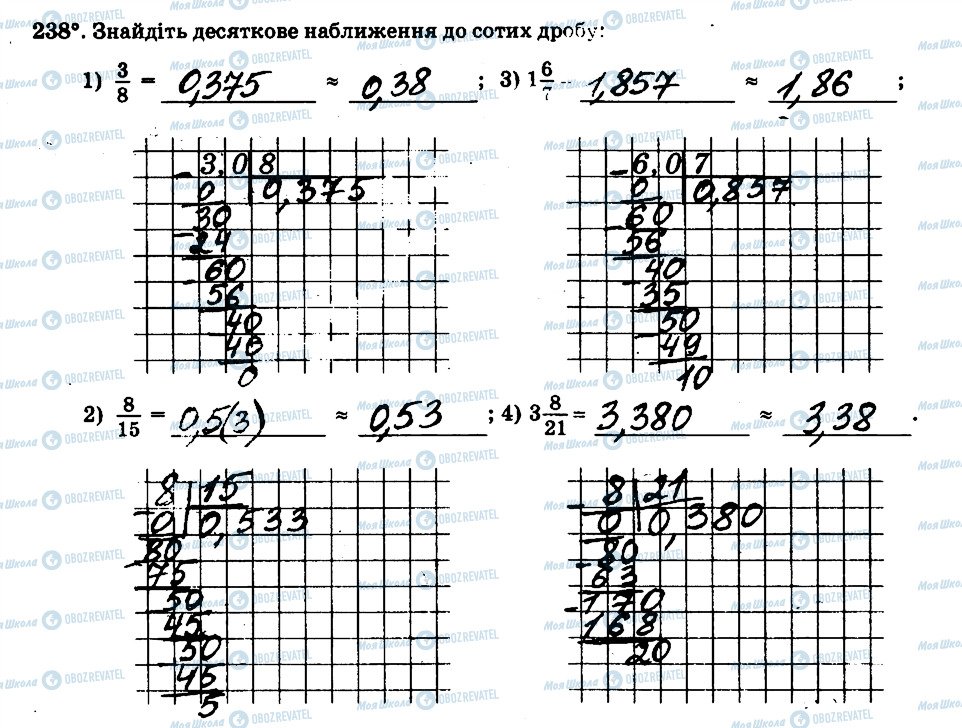 238°. Знайдіть десяткове наближення до сотих дробу:
1) 3/8 = 0,375 ≈ 0,38 ; 3) 1 6/7 = 1,857 ≈ 1,86 ;
3,0 8
0 0,375
30
24
60
56
40
40
0
6,0 7
0 0,857
60
56
40
35
50
49
10
2) 8/15 = 0,5(3) ≈ 0,53 ; 4) 3 8/21 = 3,380 ≈ 3,38 .
8 15
0 0,533
80
75
50
45
50
45
5
8 21
0 0,380
80
63
170
168
20
Моя Школа OBOZREVATEL